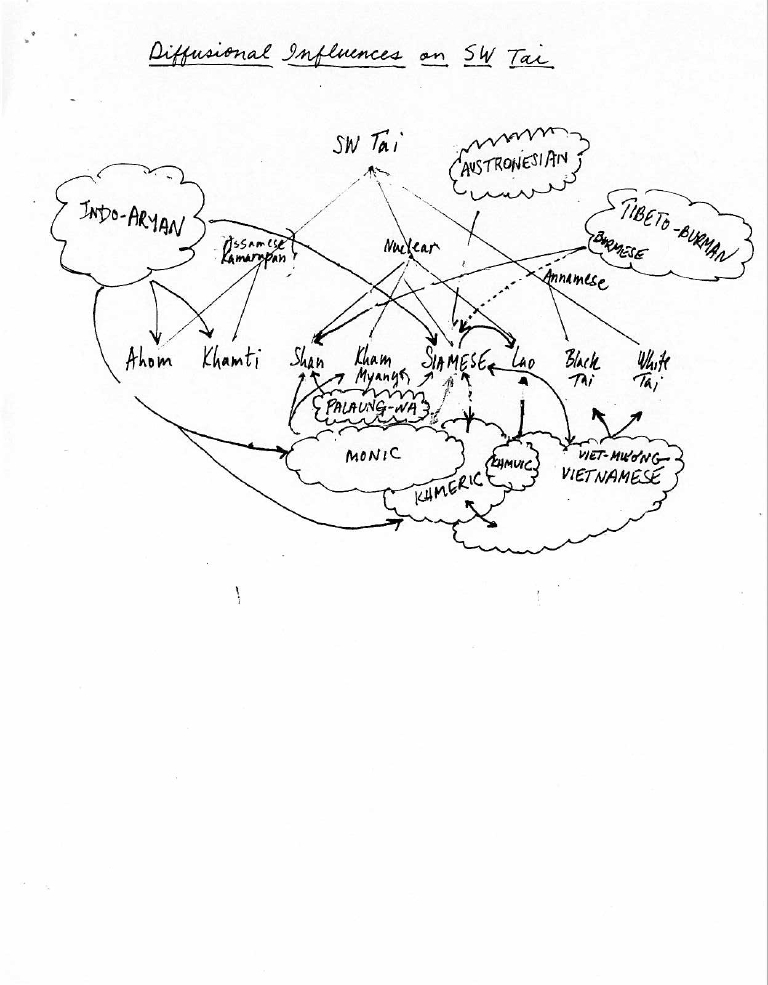 Diffusional Influences on SW Tai
SW Tai
AUSTRONESIAN
INDO-ARYAN
TIBETO-BURMAN
BURMESE
Assamese
Kamarupan
Nuclear
Annamese
Ahom
Khamti
Shan
Kham
Myang
SIAMESE
Lao
Black
Tai
White
Tai
PALAUNG-WA
MONIC
KHMERIC
KHMUIC
VIET-MƯỜNG
VIETNAMESE